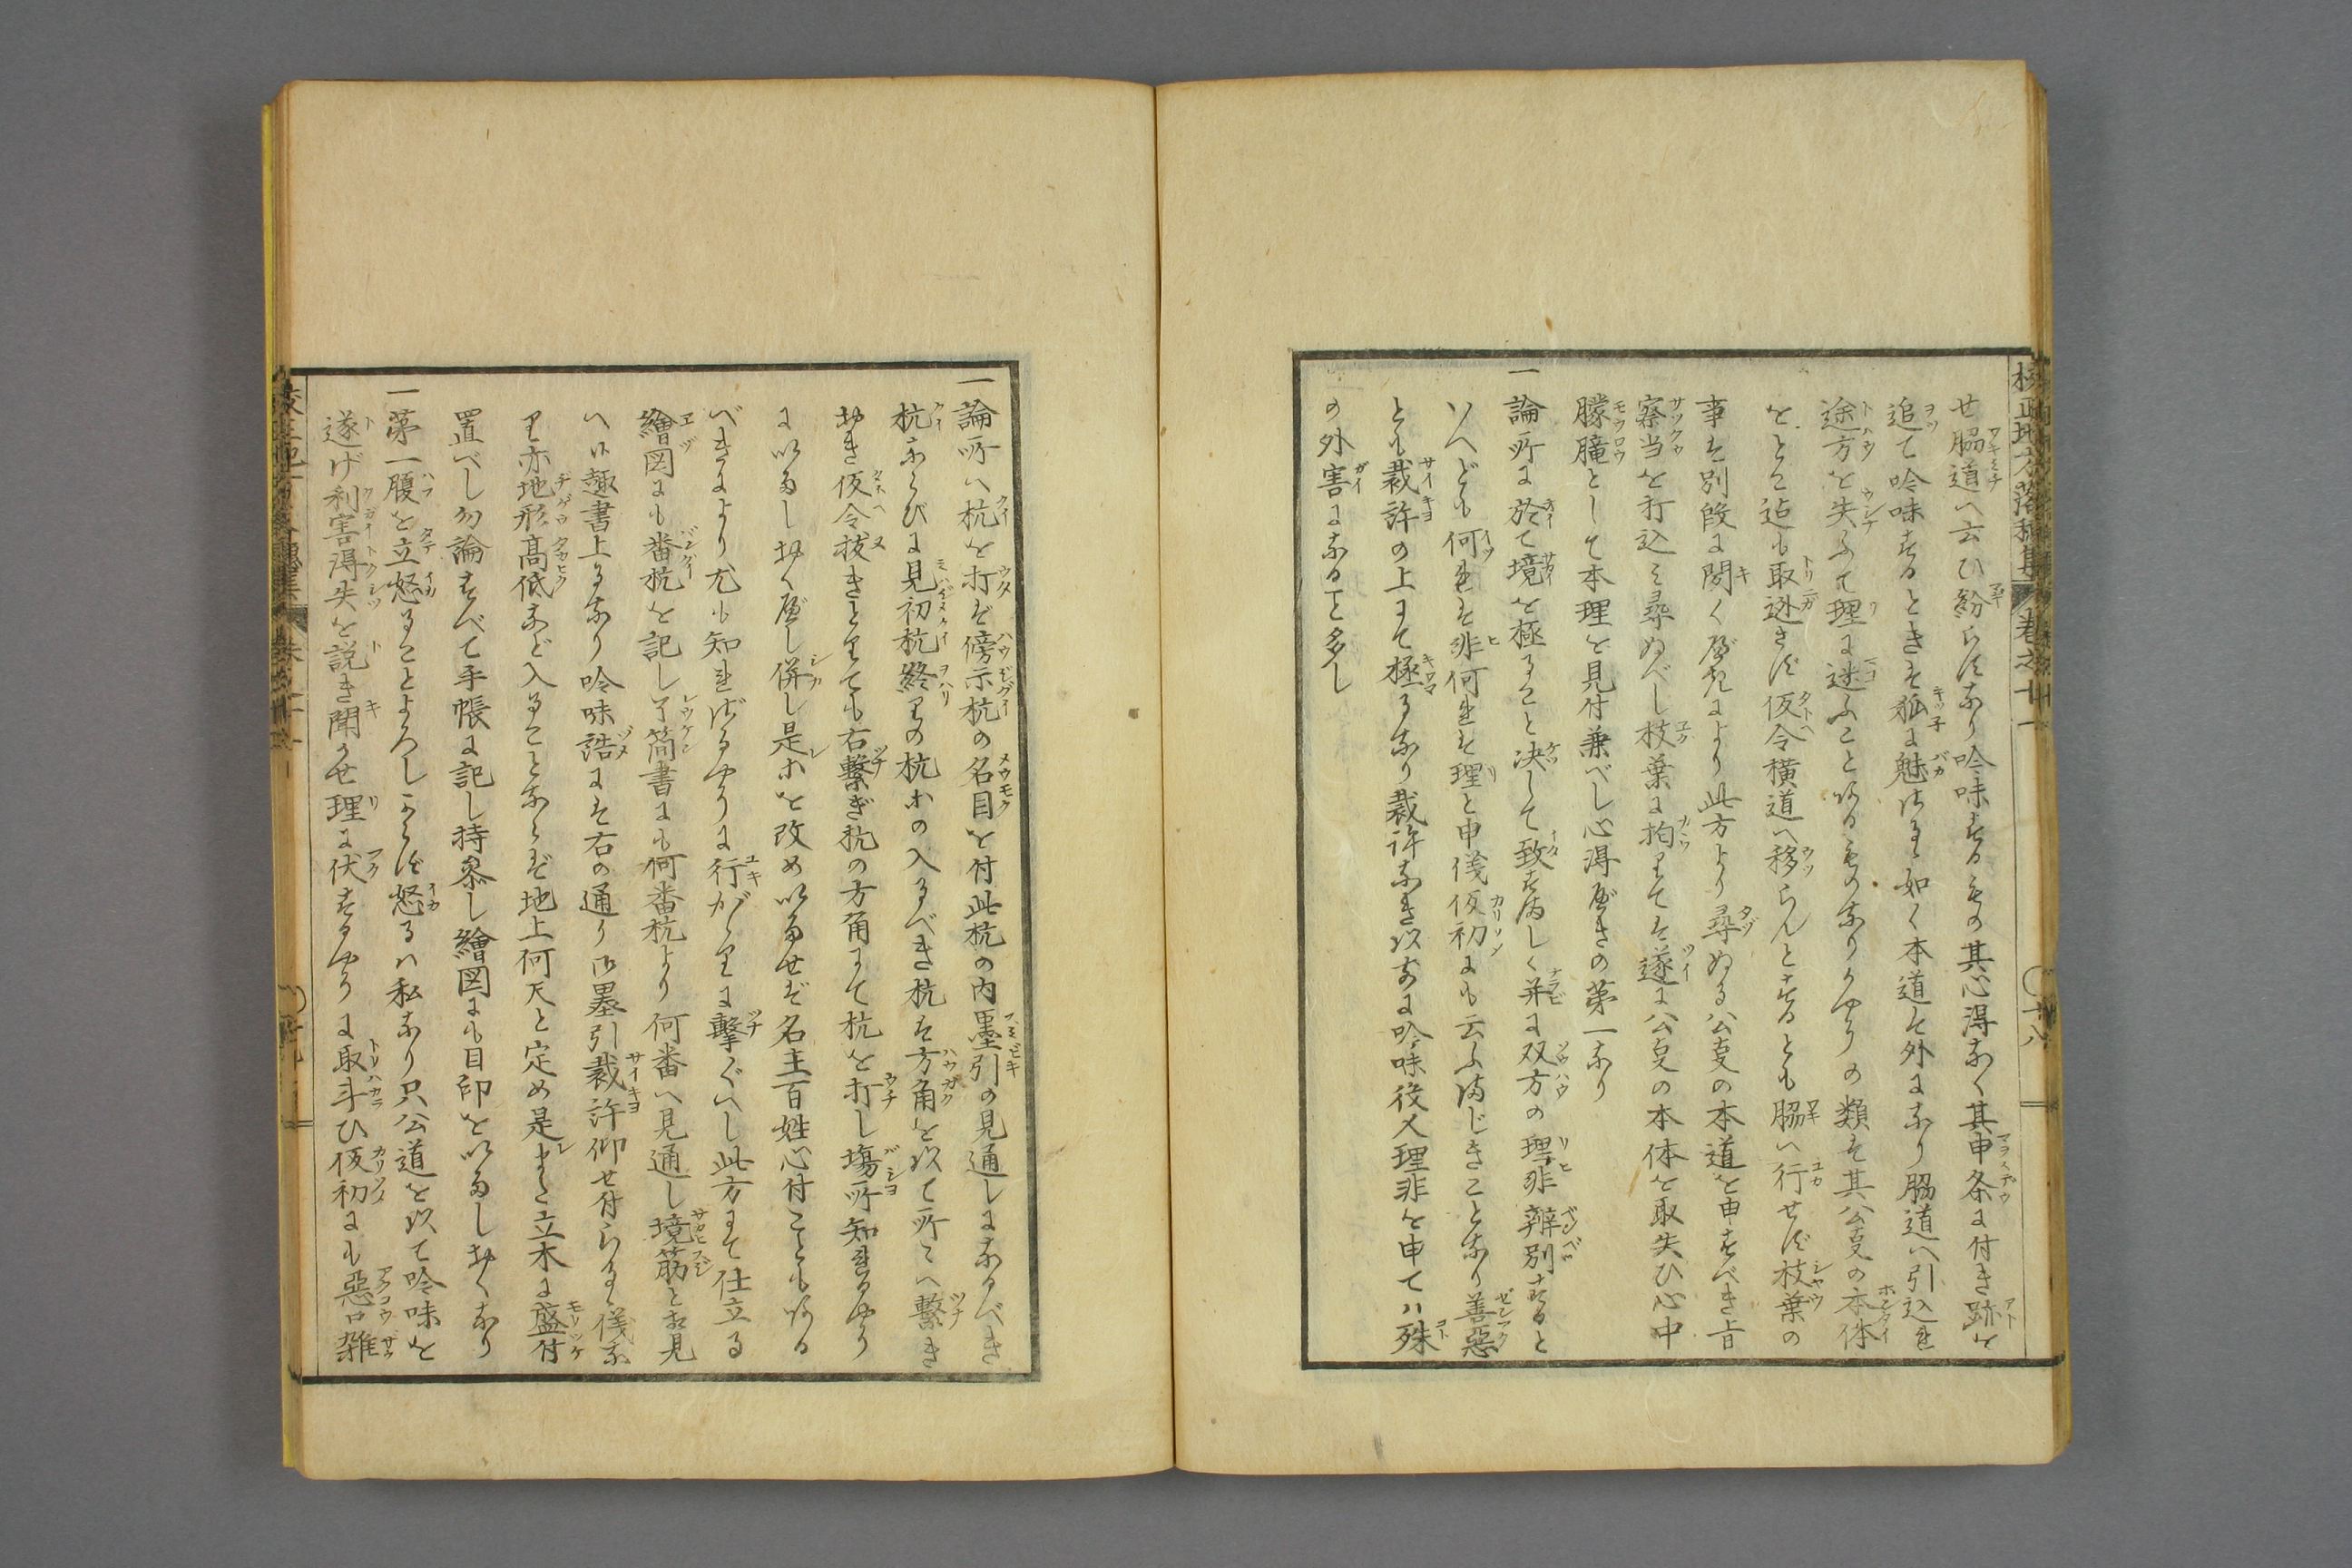 校正地方落穂集 巻之十一 〇十八
せ脇道へ云ひ紛らす也なり吟味するもの其心得なく其申条に付き跡を
追て吟味するときは狐に魅さるゝ如く本道は外になり脇道へ引込れ
途方を失ふて理に迷ふことあるものなりかやうの類は其公事の本体
をとこ迄も取迯さず仮令横道へ移らんとするとも脇へ行せず枝葉の
事は別段に聞く歟夫により此方より尋ぬる公事の本道を申すべき旨
察当を打込み尋ぬべし枝葉に拘りては遂に公事の本体を取失ひ心中
朦朧として本理を見付兼べし心得べきの第一なり
一論所に於て境を極ること決して致すまじく并に双方の理非辨別すると
いへども何れは非何れは理と申儀仮初にも云ふまじきことなり善悪
とも裁許の上にて極るなり裁許なき以前に吟味役人理非を申ては殊
の外害になること多し
一論所へ杭を打ば傍示杭の名目を付此杭の内墨引の見通しになるべき
杭ならびに見初杭終りの杭等の入るべき杭は方角を以て所々へ繋き
おき仮令抜きとりても右繋ぎ杭の方角にて杭を打し場所知れるやう
にいたしおくべし併し是等を改めいたせば名主百姓心付こともある
べきにより尤も知れざるやうに行がゝりに繋ぐべし此方にて仕立る
繪図にも番杭を記し了簡書にも何番杭より何番へ見通し境筋と相見
へ候趣書上るなり吟味詰には右の通り御墨引裁許仰せ付らるゝ儀ゆへ
り亦地形高低など入ることならば地上何尺と定め是また立木に盛付
置べし勿論すべて手帳に記し持参し繪図にも目印をいたしおくなり
一第一腹を立怒ることよろしからず怒るハ私なり只公道を以て吟味を
遂げ利害得失を説き聞かせ理に伏するやうに取斗ひ仮初にも惡口雑